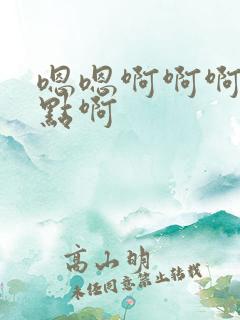 嗯嗯啊啊啊
點啊
高山明
未经同意禁止转载